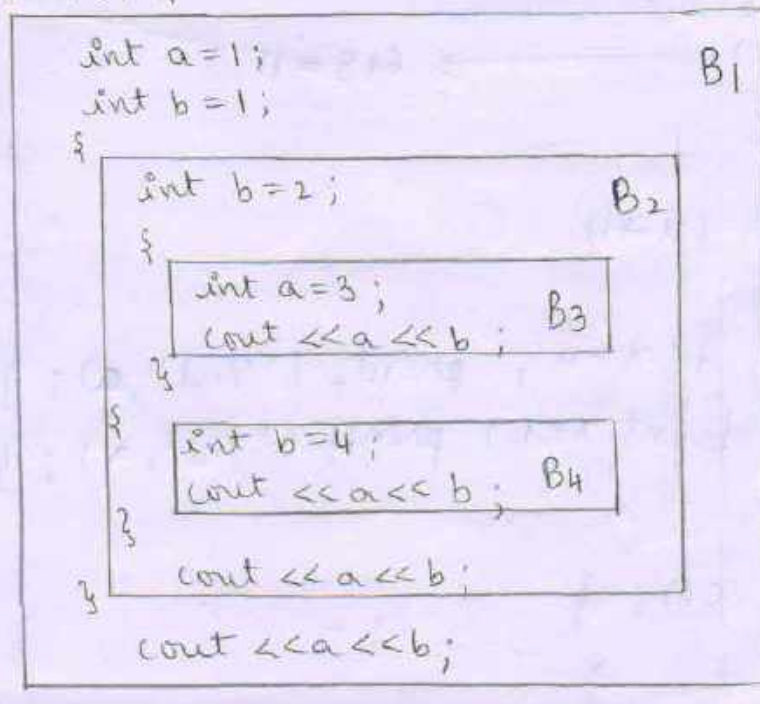 int a=1;
B1
int b=1;
{
int b=2;
B2
{
int a=3;
B3
cout <<a<<b;
}
{
int b=4;
cout <<a<< b;
B4
}
cout <<a<<b;
}
cout <<a<<b;